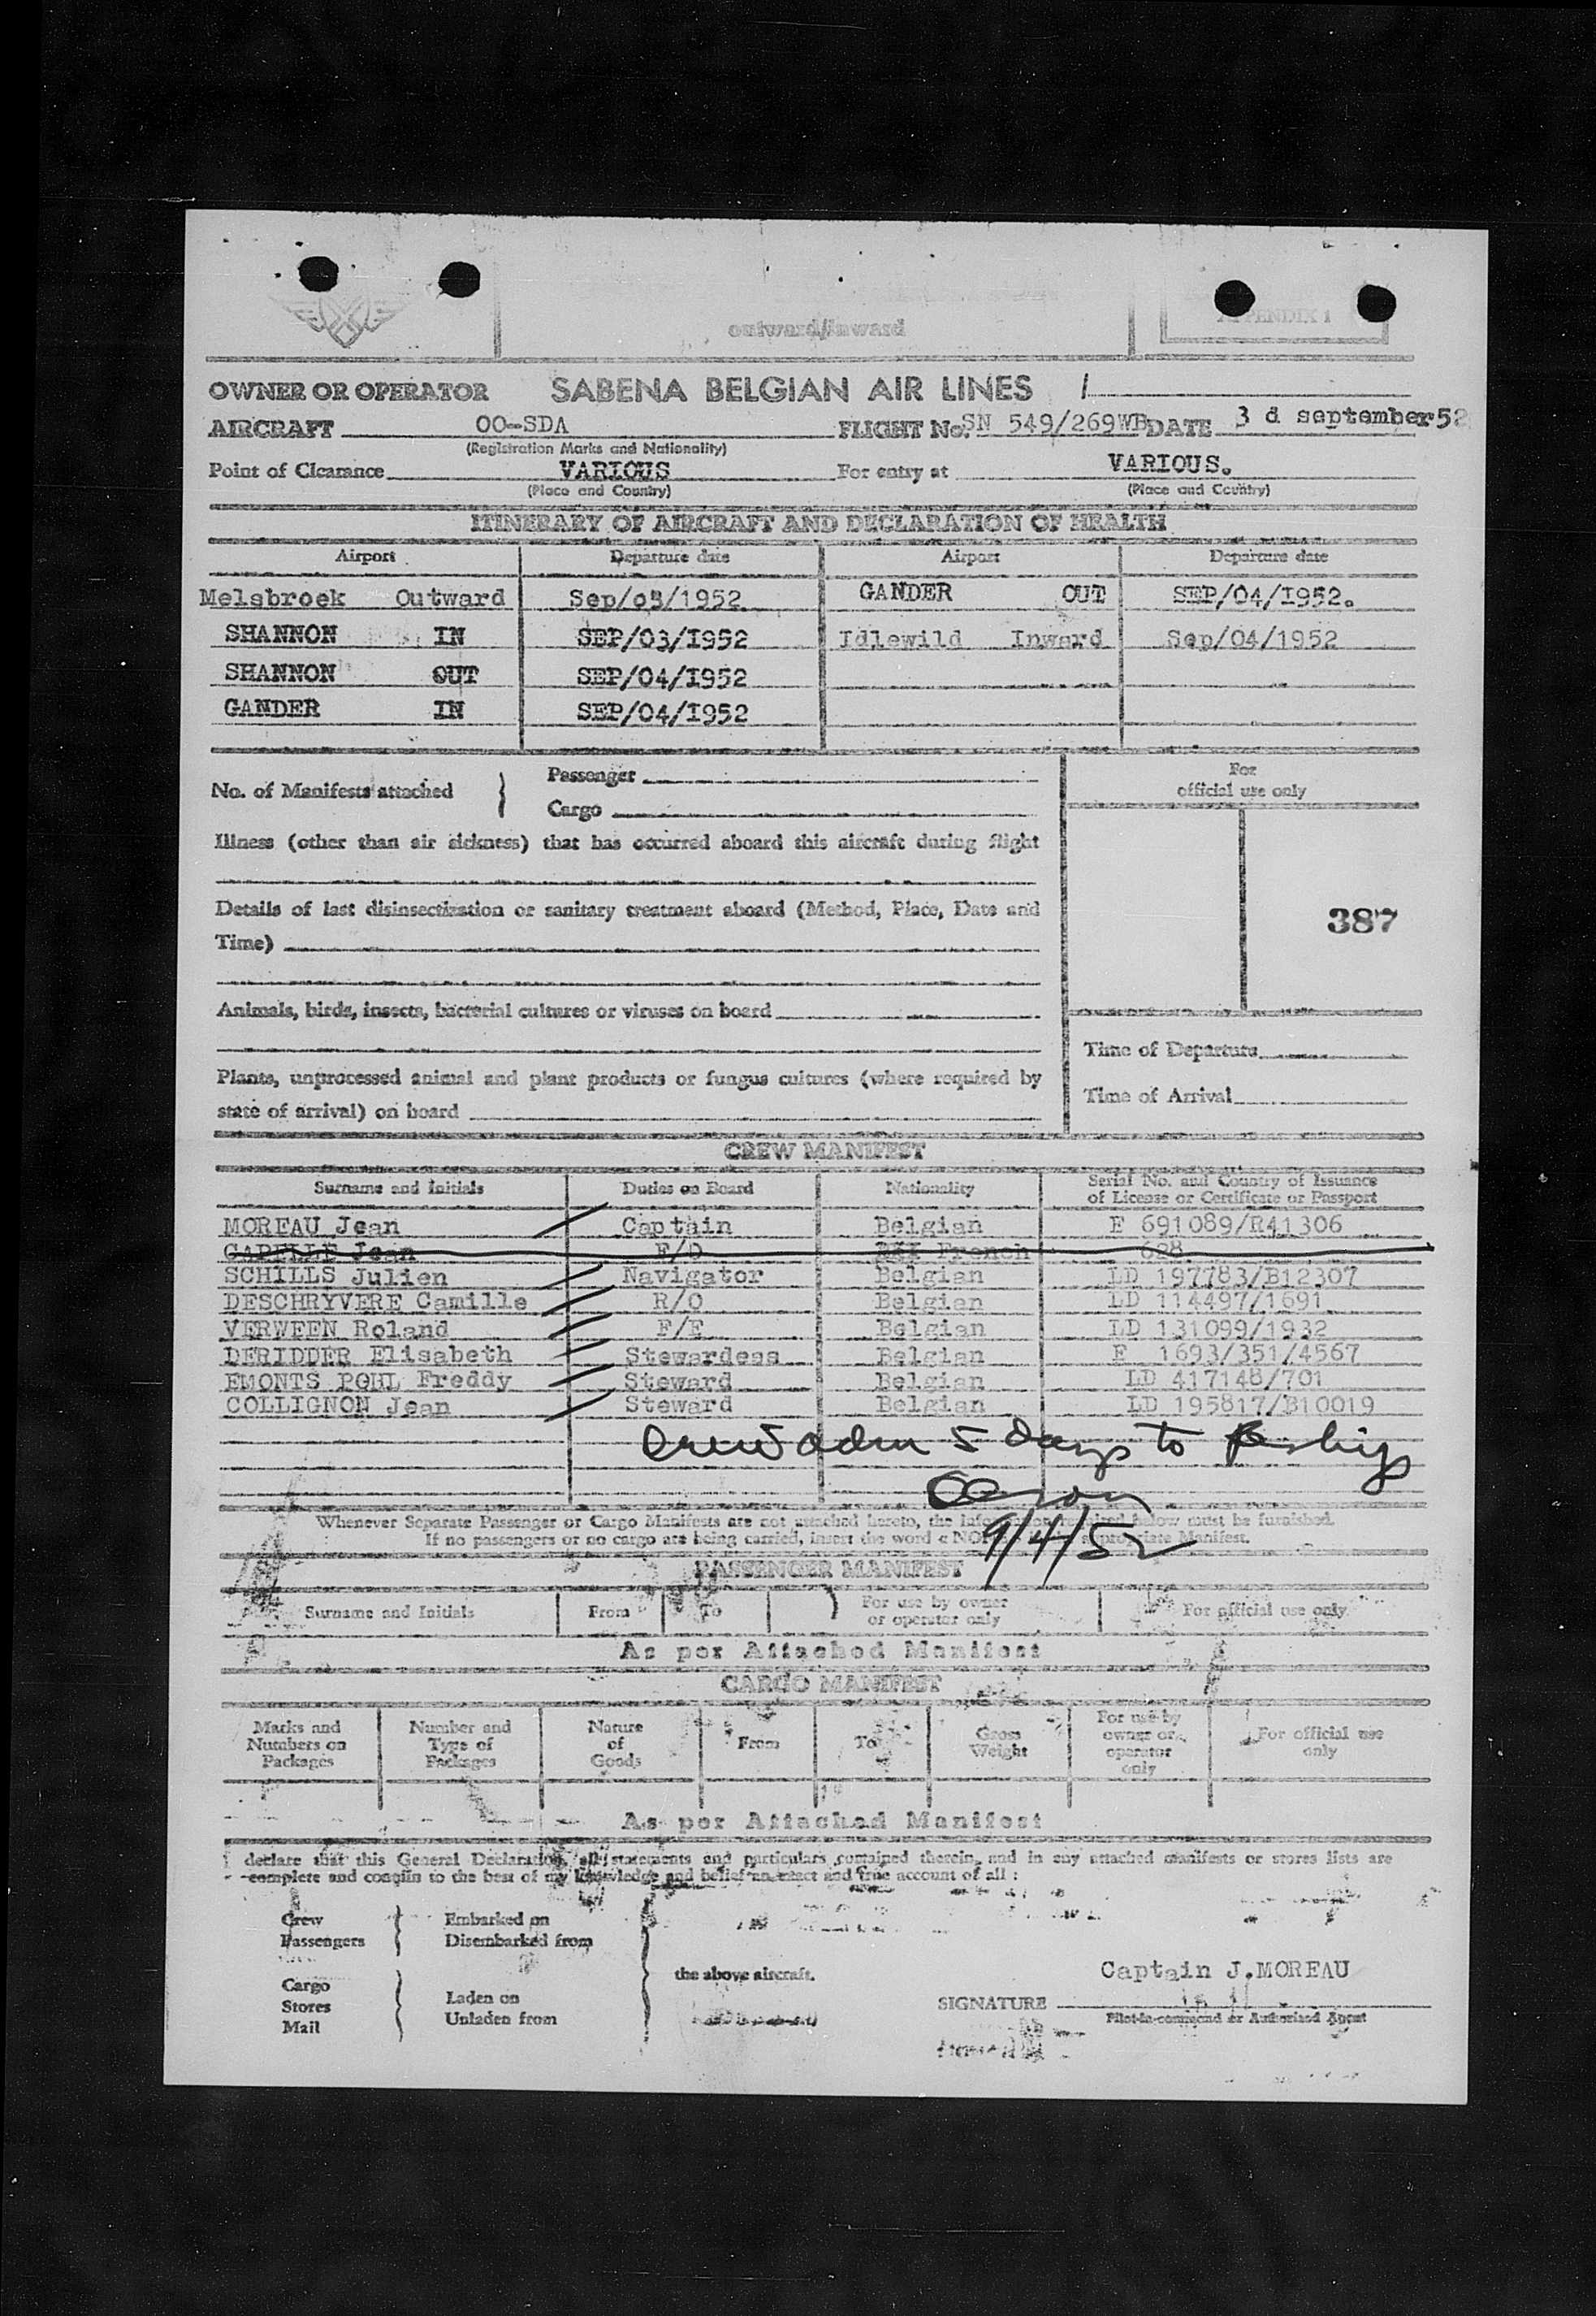 outward/inward
APPENDIX 1
OWNER OR OPERATOR SABENA BELGIAN AIR LINES
AIRCRAFT OO-SDA FLIGHT No. SN 549/269WB DATE 3 d september 52
(Registration Marks and Nationality)
Point of Clearance VARIOUS For entry at VARIOUS.
(Place and Country) (Place and Country)
ITINERARY OF AIRCRAFT AND DECLARATION OF HEALTH
Airport Departure date Airport Departure date
Melsbroek Outward Sep/03/1952 GANDER OUT SEP/04/I952.
SHANNON IN SEP/03/I952 Idlewild Inward Sep/04/1952
SHANNON OUT SEP/04/I952
GANDER IN SEP/04/I952
No. of Manifests attached } Passenger
Cargo
For
official use only
Illness (other than air sickness) that has occurred aboard this aircraft during flight
Details of last disinsectization or sanitary treatment aboard (Method, Place, Date and
Time)
387
Animals, birds, insects, bacterial cultures or viruses on board
Time of Departure
Plants, unprocessed animal and plant products or fungus cultures (where required by
state of arrival) on board
Time of Arrival
CREW MANIFEST
Surname and Initials Duties on Board Nationality Serial No. and Country of Issuance
of License or Certificate or Passport
MOREAU Jean Captain Belgian E 691089/R41306
CAPELLE Jean F/O French 628
SCHILLS Julien Navigator Belgian LD 197783/B12307
DESCHRYVERE Camille R/O Belgian LD 114497/1691
VERWEEN Roland F/E Belgian LD 131099/1932
DERIDDER Elisabeth Stewardess Belgian E 1693/351/4567
EMONTS POHL Freddy Steward Belgian LD 417148/701
COLLIGNON Jean Steward Belgian LD 195817/B10019
Crew adm 5 days to
9/4/52
Whenever Separate Passenger or Cargo Manifests are not attached hereto, the information required below must be furnished.
If no passengers or no cargo are being carried, insert the word « NO appropriate Manifest.
PASSENGER MANIFEST
Surname and Initials From To For use by owner
or operator only For official use only
As per Attached Manifest
CARGO MANIFEST
Marks and
Numbers on
Packages
Number and
Type of
Packages
Nature
of
Goods
From
To
Gross
Weight
For use by
owner or
operator
only
For official use
only
As per Attached Manifest
I declare that this General Declaration, all statements and particulars contained therein, and in any attached manifests or stores lists are
complete and conglin to the best of my knowledge and belief an exact and true account of all :
Crew } Embarked on
Passengers Disembarked from
the above aircraft.
Captain J.MOREAU
Cargo
Stores } Laden on
Mail Unladen from
SIGNATURE
Pilot-in-command or Authorised Agent